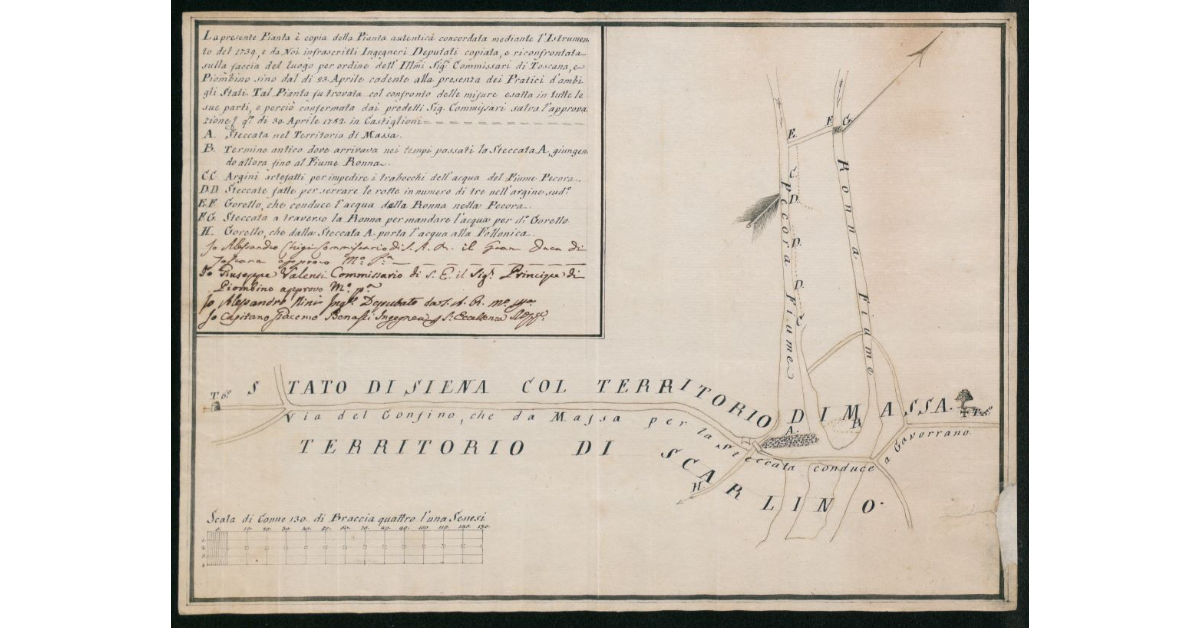 La presente Pianta è copia della Pianta autentica concordata mediante l'Istrumen
to del 1739, e da Noi infrascritti Ingegneri Deputati copiata, e riconfrontata
sulla faccia del luogo per ordine dell'Illmi Sigri Commissari di Toscana, e
Piombino sino dal dì 23. Aprile cadente alla presenza dei Pratici d'ambi
gli Stati. Tal Pianta fu trovata col confronto delle misure esatta in tutte le
sue parti, e perciò confermata dai predetti Sig. Commissari salva l'approva
zione qto dì 30. Aprile 1782. in Castiglioni
A. Steccata nel Territorio di Massa.
B. Termino antico dove arrivava nei tempi passati la Steccata A, giungen
do allora fino al Fiume Ronna.
C.C. Argini artefatti per impedire i trabocchi dell'acqua del Fiume Pecora.
D.D. Steccate fatte per serrare le rotte in numero di tre nell'argine sudo
E.F. Gorello, che conduce l'acqua della Ronna nella Pecora.
F.G. Steccata a traverso la Ronna per mandare l'acqua per do Gorello
H. Gorello, che dalla Steccata A. porta l'acqua alla Follonica.
Io Alessandro Chigi Commissario di S. A. R. il Gran Duca di
Toscana approvo Mo. Pa.
Io Giuseppe Valenti Commissario di S. E. il Sigr Principe di
Piombino approvo Mo pa.
Io Alessandro Nini Ingre Deputato da S. A. R. mo
Io Capitano Giacomo Ingegnere
E.
F.
G.
D.
D.
D.
Pecora Fiume
Ronna Fiume
STATO DI SIENA COL TERRITORIO DI MASSA.
Via del Confino, che da Massa per la Steccata conduce a Gavorrano
A.
B.
H.
TERRITORIO DI SCARLINO.
Scala di Canne 130. di Braccia quattro l'una Senesi